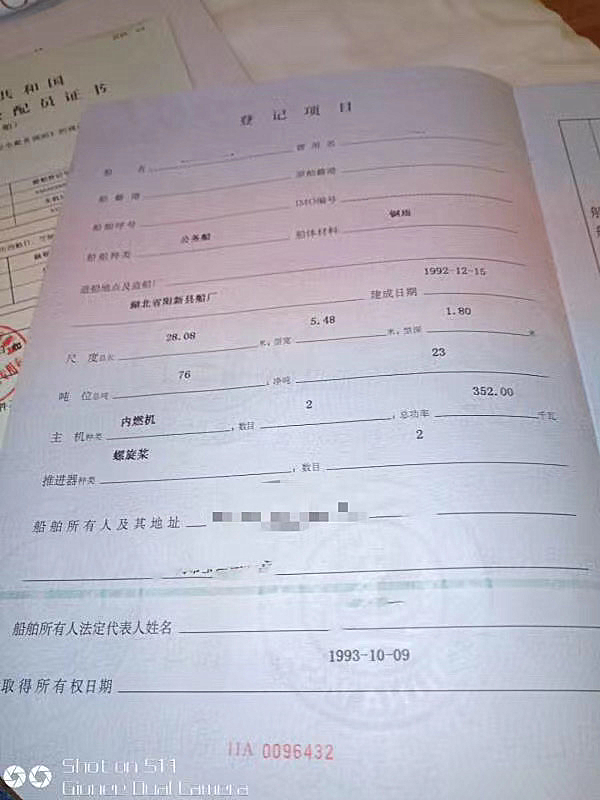 共和国
配员证书
登记项目
船名 曾用名
船籍港 原船籍港
船舶呼号 IMO编号
船舶种类 公务船 船体材料 钢质
造船地点及造船厂
湖北省阳新县船厂 建成日期 1992-12-15
尺度总长 28.08 米，型宽 5.48 米，型深 1.80 米
吨位总吨 76 ，净吨 23
主机种类 内燃机 ，数目 2 ，总功率 352.00 千瓦
推进器种类 螺旋桨 ，数目 2
船舶所有人及其地址
船舶所有人法定代表人姓名
取得所有权日期 1993-10-09
IIA 0096432
Shot on S11
Gionee Dual Camera